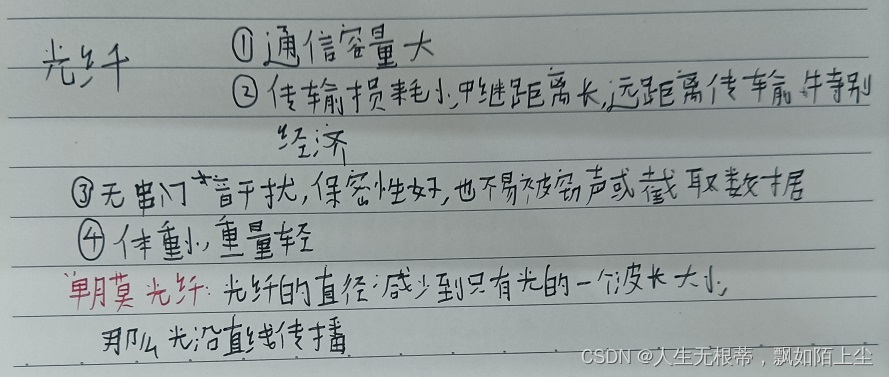 光纤 ①通信容量大
②传输损耗小,中继距离长,远距离传输特别
经济
③无串门音干扰,保密性好,也不易被窃声或截取数据
④体重小,重量轻
单模光纤:光纤的直径减少到只有光的一个波长大小,
那么光沿直线传播
CSDN @人生无根蒂,飘如陌上尘